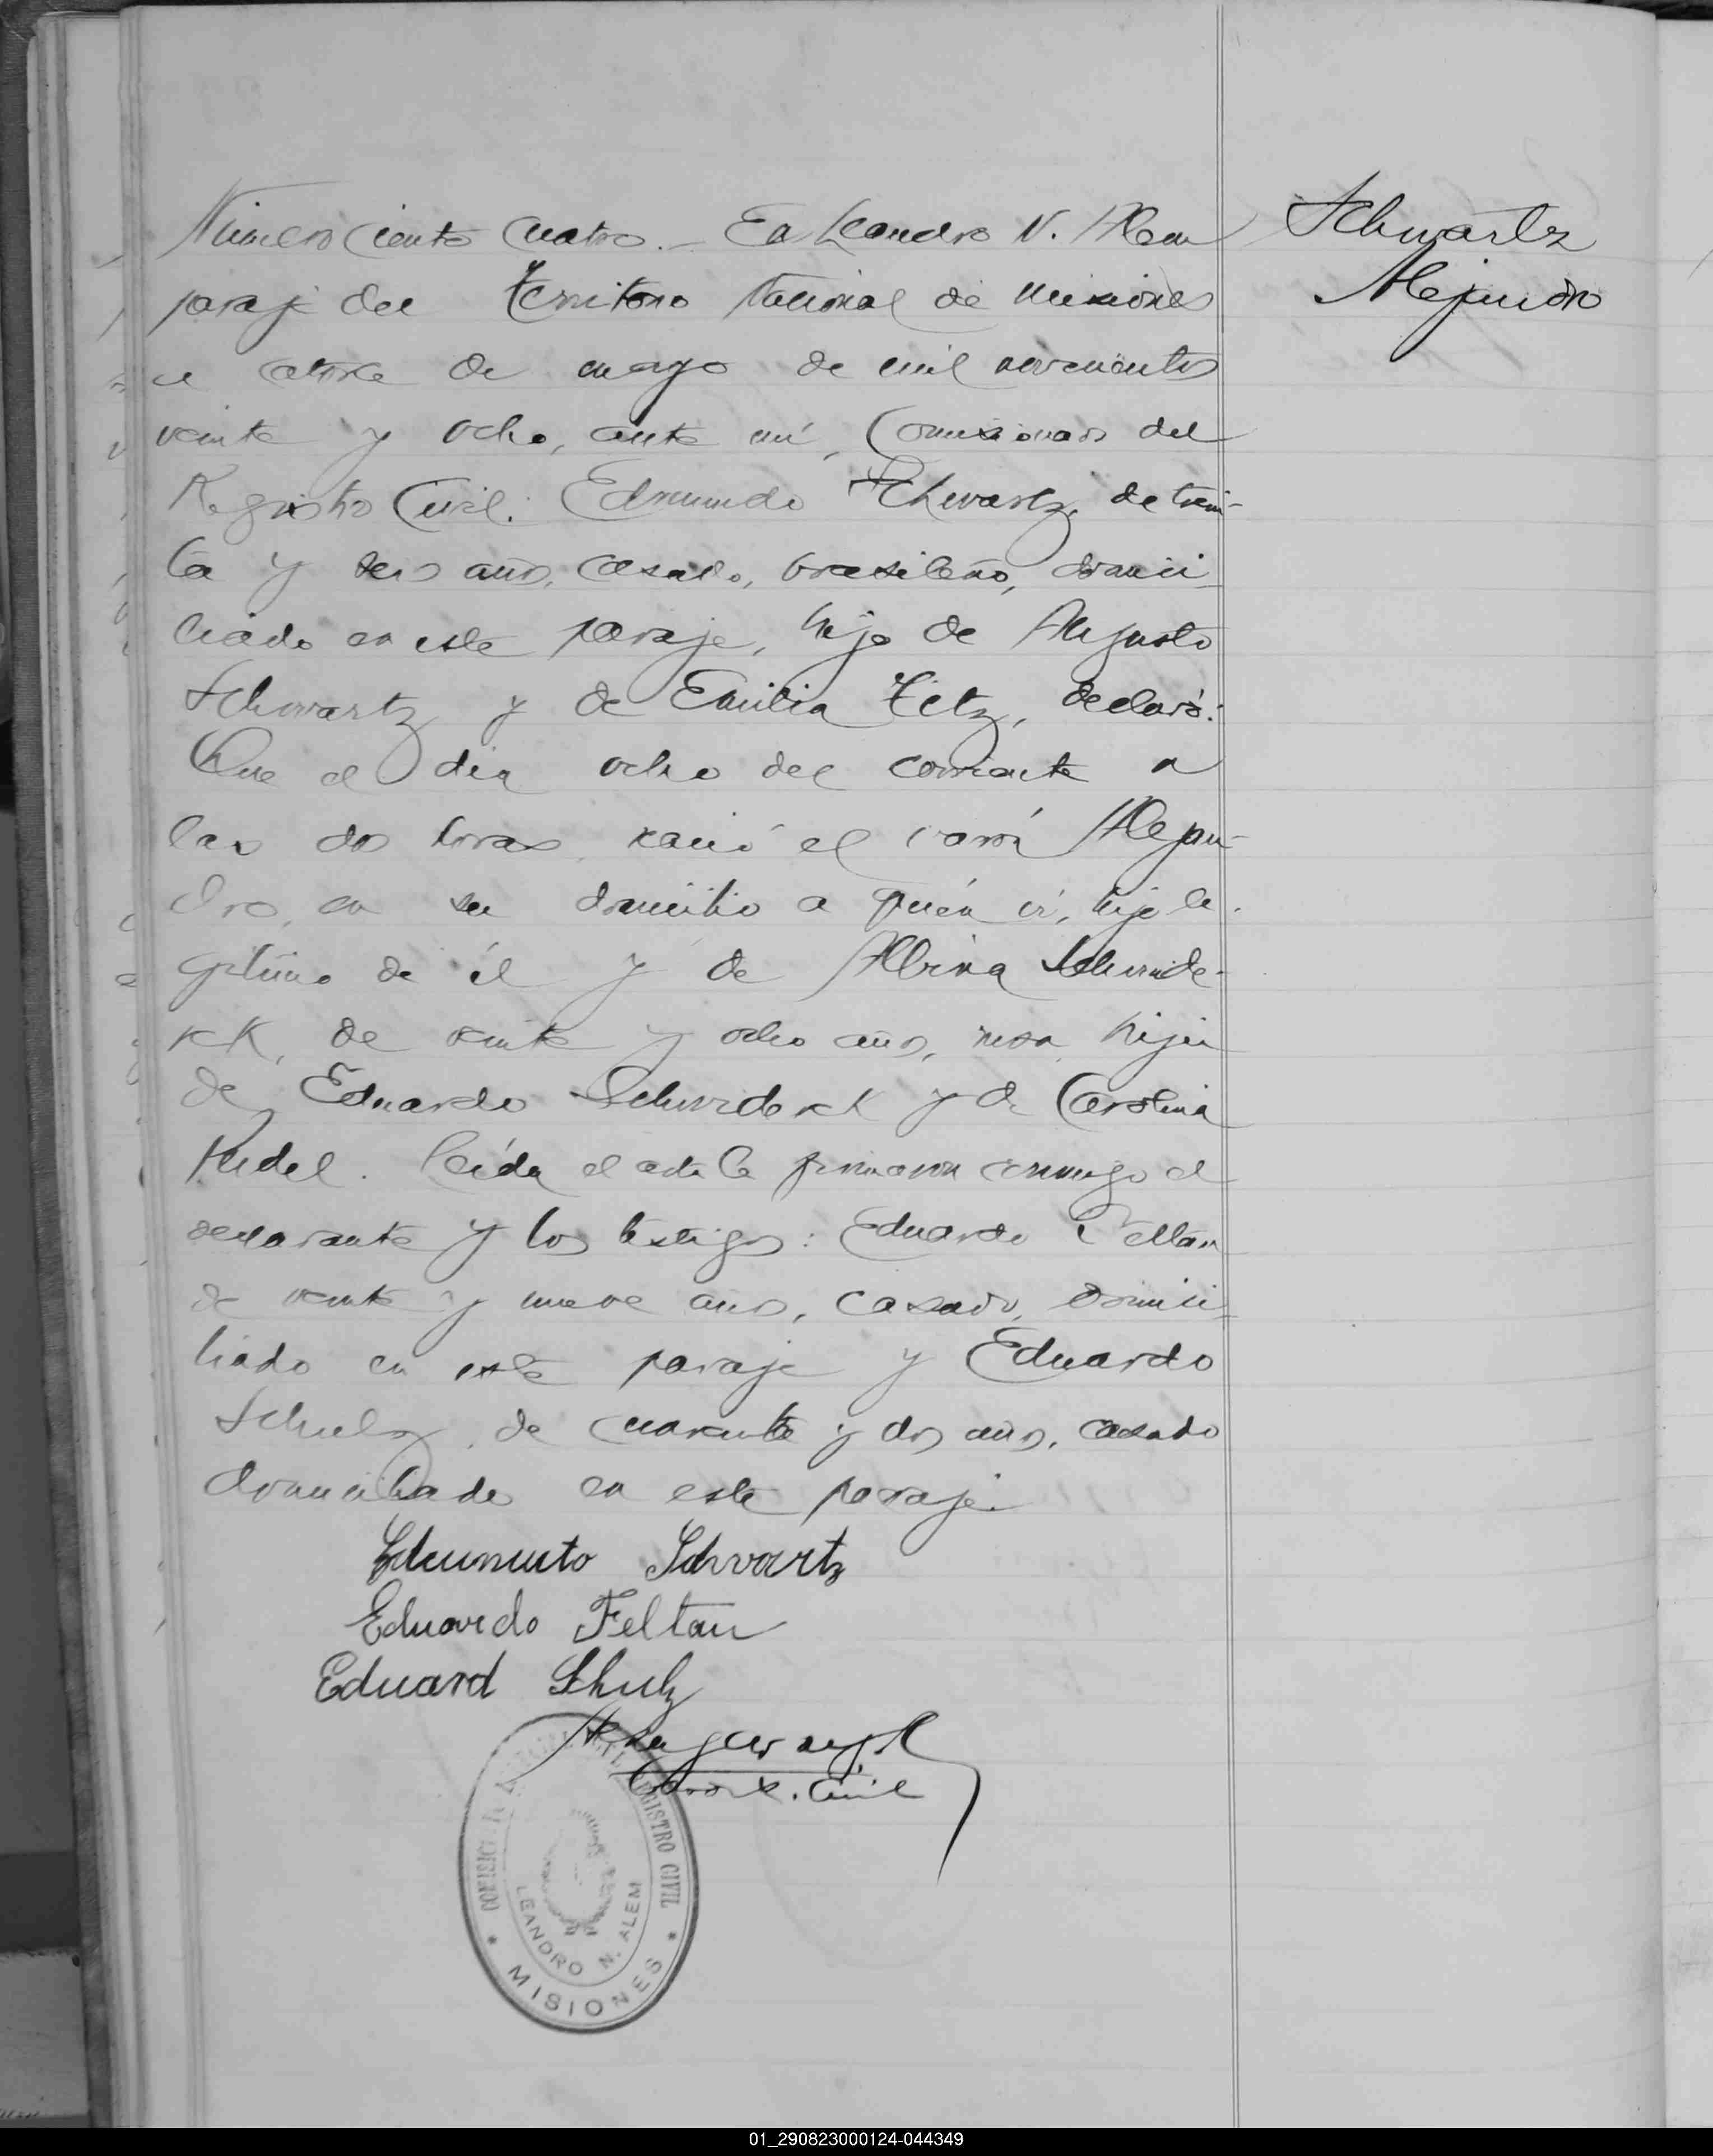 Número ciento cuatro. - En Leandro N. Alem
paraje del Territorio Nacional de Misiones
a catorce de mayo de mil novecientos
veinte y ocho, ante mí, Comisionado del
Registro Civil: Edmundo Schwartz, de trein-
ta y seis años, casado, brasileño, domici-
liado en este paraje, hijo de Augusto
Schwartz y de Emilia Tetz, declaró:
Que el dia ocho del corriente a
las dos horas, nació el varón Alejan-
dro, en su domicilio a quién ví, hijo le-
gítimo de él y de Albina
de veinte y ocho años, rusa, hija
de Eduardo y de Carolina
Leída el acta la firmaron conmigo el
declarante y los testigos: Eduardo Feltan
de veinte y nueve años, casado, domici-
liado en este paraje y Eduardo
Schulz, de cuarenta y dos años, casado
domiciliado en este paraje.
Schwartz
Alejandro
Edmundo Schvartz
Eduardo Feltan
Eduard Shulz
Civil
REGISTRO CIVIL
LEANDRO N. ALEM
* MISIONES *
01_290823000124-044349